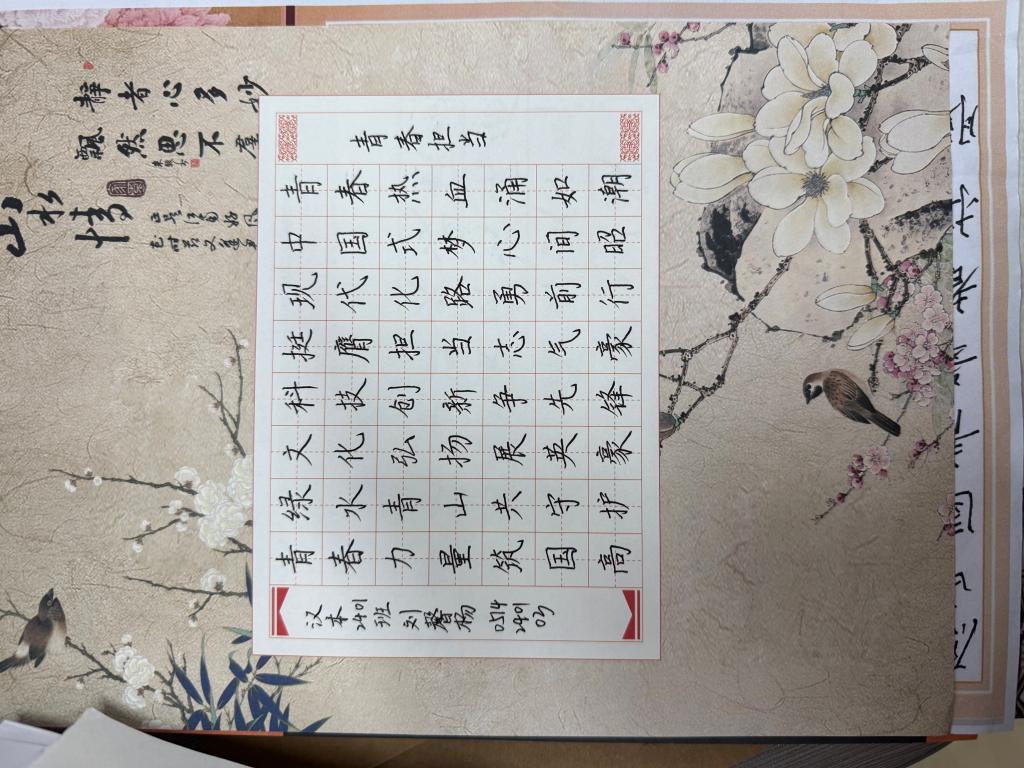 静者心多妙
飘然思不群
山水情
青春担当
青春热血涌如潮
中国式梦心间昭
现代化路勇前行
挺膺担当志气豪
科技创新争先锋
文化弘扬展英豪
绿水青山共守护
青春力量筑国高
汉本2401班刘馨杨0514240103